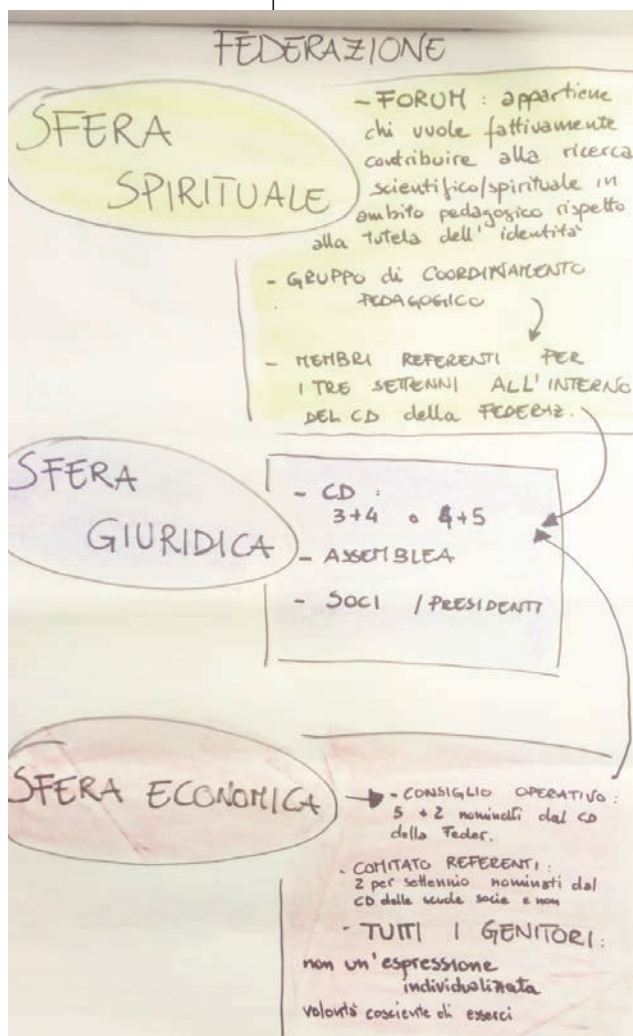 FEDERAZIONE
SFERA
SPIRITUALE
- FORUM : appartiene
chi vuole fattivamente
contribuire alla ricerca
scientifico/spirituale in
ambito pedagogico rispetto
alla tutela dell'identità
- GRUPPO di COORDINAMENTO
PEDAGOGICO
- MEMBRI REFERENTI PER
I TRE SETTENNI ALL'INTERNO
DEL CD della FEDERAZ.
SFERA
GIURIDICA
- CD :
3+4 o 4+5
- ASSEMBLEA
- SOCI / PRESIDENTI
SFERA ECONOMICA
- CONSIGLIO OPERATIVO :
5 + 2 nominati dal CD
della Feder.
- COMITATO REFERENTI :
2 per settennio nominati dal
CD delle scuole socie e non
- TUTTI I GENITORI :
non un'espressione
individualizzata
volontà cosciente di esserci